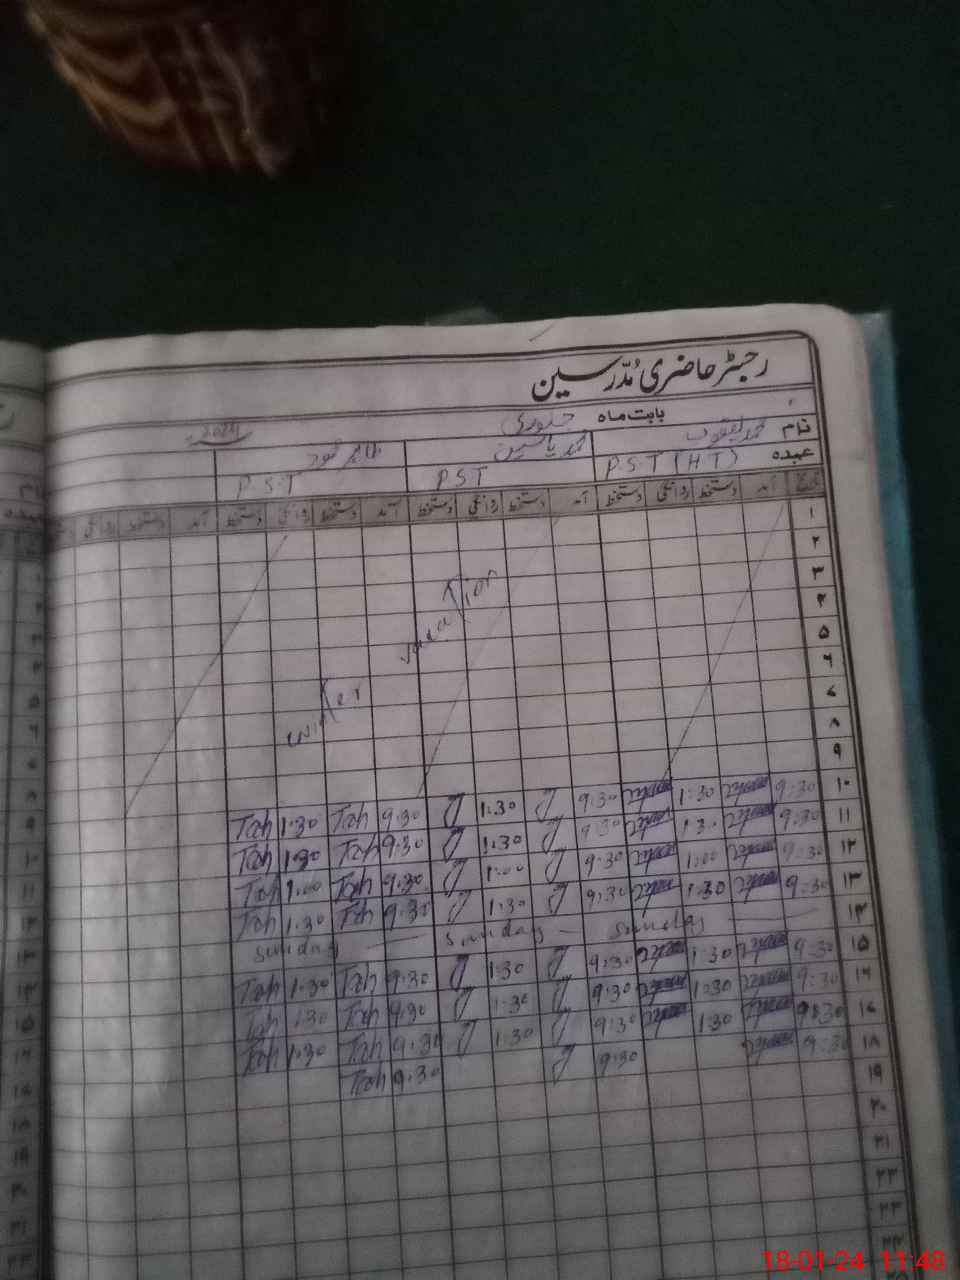 رجسٹر حاضری مُدّرسین
بابت ماہ جنوری 2024
نام محمد یعقوب محمد یاسین طاہر محمود
عہدہ P.S.T (HT) PST P.S.T
تاریخ آمد دستخط روانگی دستخط آمد دستخط روانگی دستخط آمد دستخط روانگی دستخط آمد دستخط روانگی
۱
۲
۳
۴
۵
۶
۷
۸
۹
winter vacation
۱۰ 9:30 1:30 9:30 1:30 9:30 Tah 1:30 Tah
۱۱ 9:30 1:30 9:30 1:30 9:30 Tah 1:30 Tah
۱۲ 9:30 1:00 9:30 1:00 9:30 Tah 1:00 Tah
۱۳ 9:30 1:30 9:30 1:30 9:30 Tah 1:30 Tah
۱۴ Sunday Sunday Sunday
۱۵ 9:30 1:30 9:30 1:30 9:30 Tah 1:30 Tah
۱۶ 9:30 1:30 9:30 1:30 9:30 Tah 1:30 Tah
۱۷ 9:30 1:30 9:30 1:30 9:30 Tah 1:30 Tah
۱۸ 9:30 9:30 9:30 Tah
۱۹
۲۰
۲۱
۲۲
۲۳
18-01-24 11:48